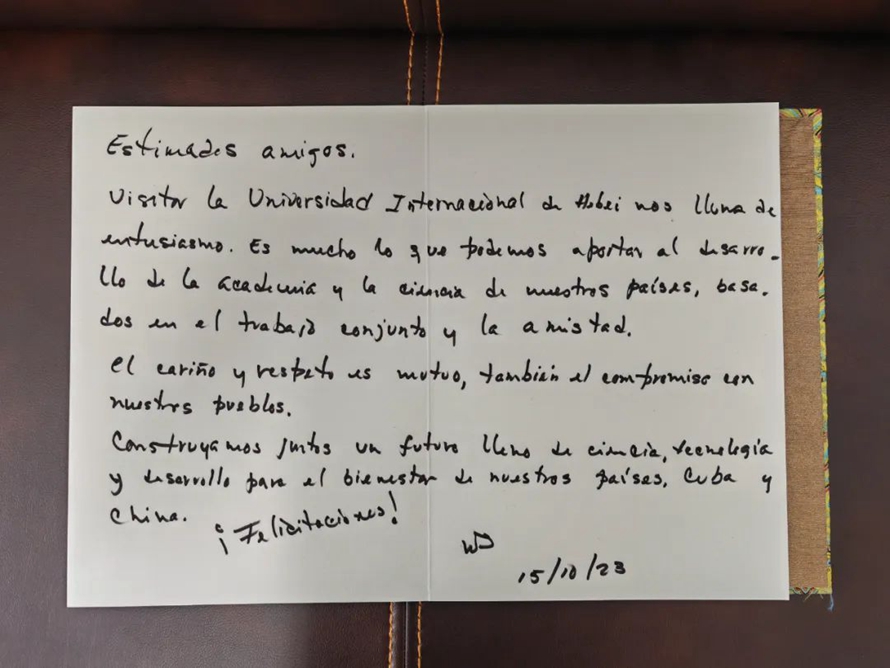 Estimados amigos.
Visitar la Universidad Internacional de Hebei nos llena de
entusiasmo. Es mucho lo que podemos aportar al desarro-
llo de la academia y la ciencia de nuestros países, basa-
dos en el trabajo conjunto y la amistad.
El cariño y respeto es mutuo, también el compromiso con
nuestros pueblos.
Construyamos juntos un futuro lleno de ciencia, tecnología
y desarrollo para el bienestar de nuestros países, Cuba y
China.
¡Felicitaciones!
15/10/23